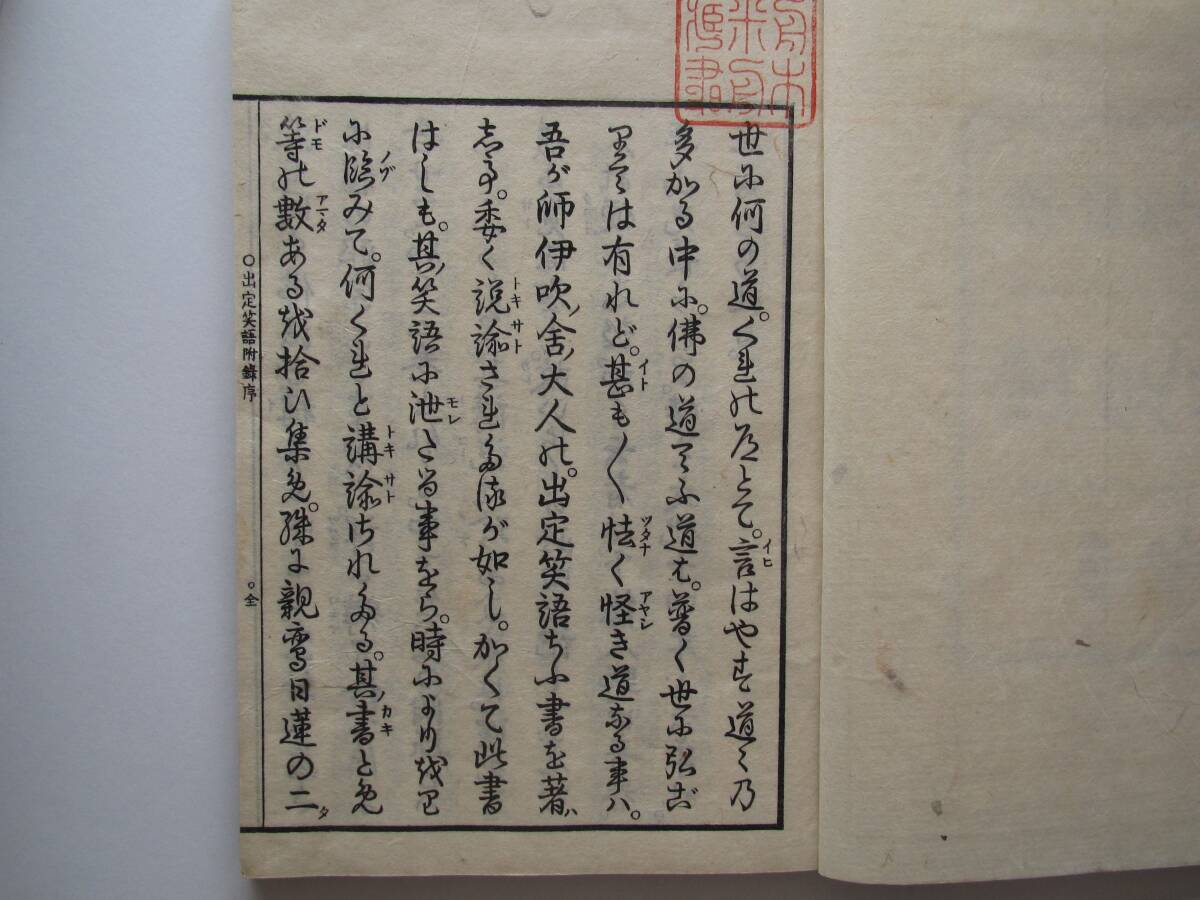 世に何の道。くれの道とて。言はやす道々乃
多かる中に。佛の道てふ道は。普く世に弘ご
りては有れど。甚も〳〵怯く怪き道なる事ハ。
吾が師伊吹ノ舍ノ大人の。出定笑語ちふ書を著ハ
して。委く説諭されたるが如し。かくて此書
はしも。其ノ笑語に泄たる事をら。時によりをり
に臨みて。何くれと講諭されたる。其ノ書とめ
等の數あるを拾ひ集め。殊に親鸞日蓮の二タ
○出定笑語附錄序 ○全